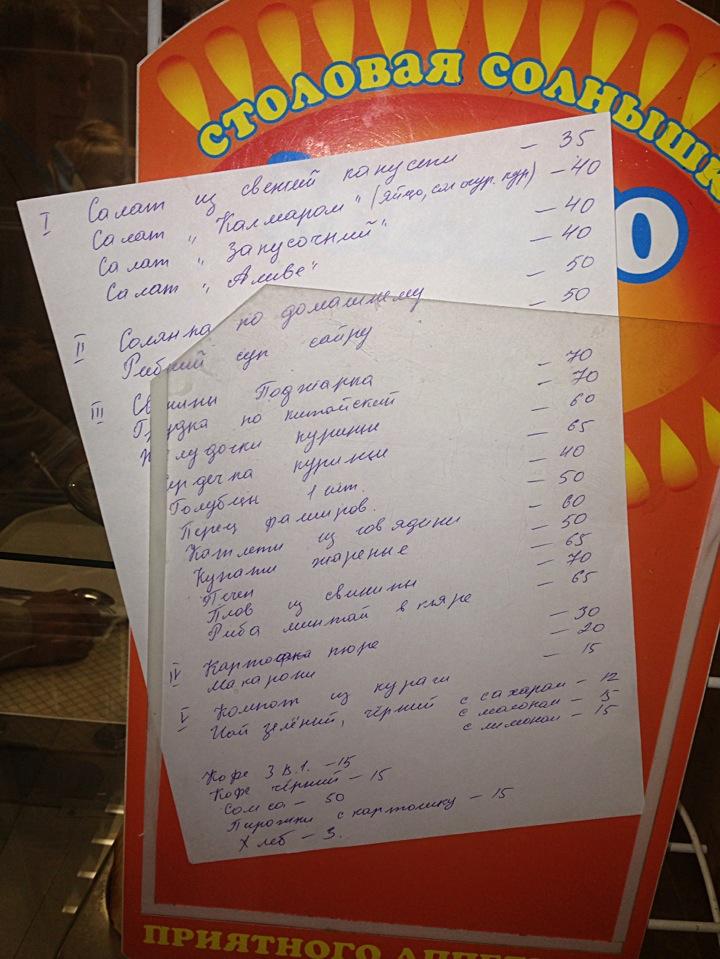 СТОЛОВАЯ СОЛНЫШК
Ю
I Салат из свежий капусти – 35
Салат „Калмаром" (Яйцо, сол огур. кур) – 40
Салат „Закусочний" – 40
Салат „Аливе" – 40
II Солянка по домашнему – 50
Рибний суп сайру – 50
III Свинины Поджарка – 70
Грудка по китайский – 70
Желудочки куриные – 60
Сердечка куриные – 65
Голубцы 1 шт. – 40
Перец фаширов. – 50
Катлети из говядини – 60
Купати жареные – 50
Печен – 65
Плов из свинины – 70
Риба минтай в кляре – 65
IV Картофка пюре – 30
Макарони – 20
V Компот из кураги – 15
Чай зелёний, чёрний с сахаром – 12
с молоком – 15
с лимоном – 15
Кофе 3 в.1. – 15
Кофе чёрний – 15
Сомса – 50
Пирожки с картошку – 15
Хлеб – 3.
ПРИЯТНОГО АППЕТ